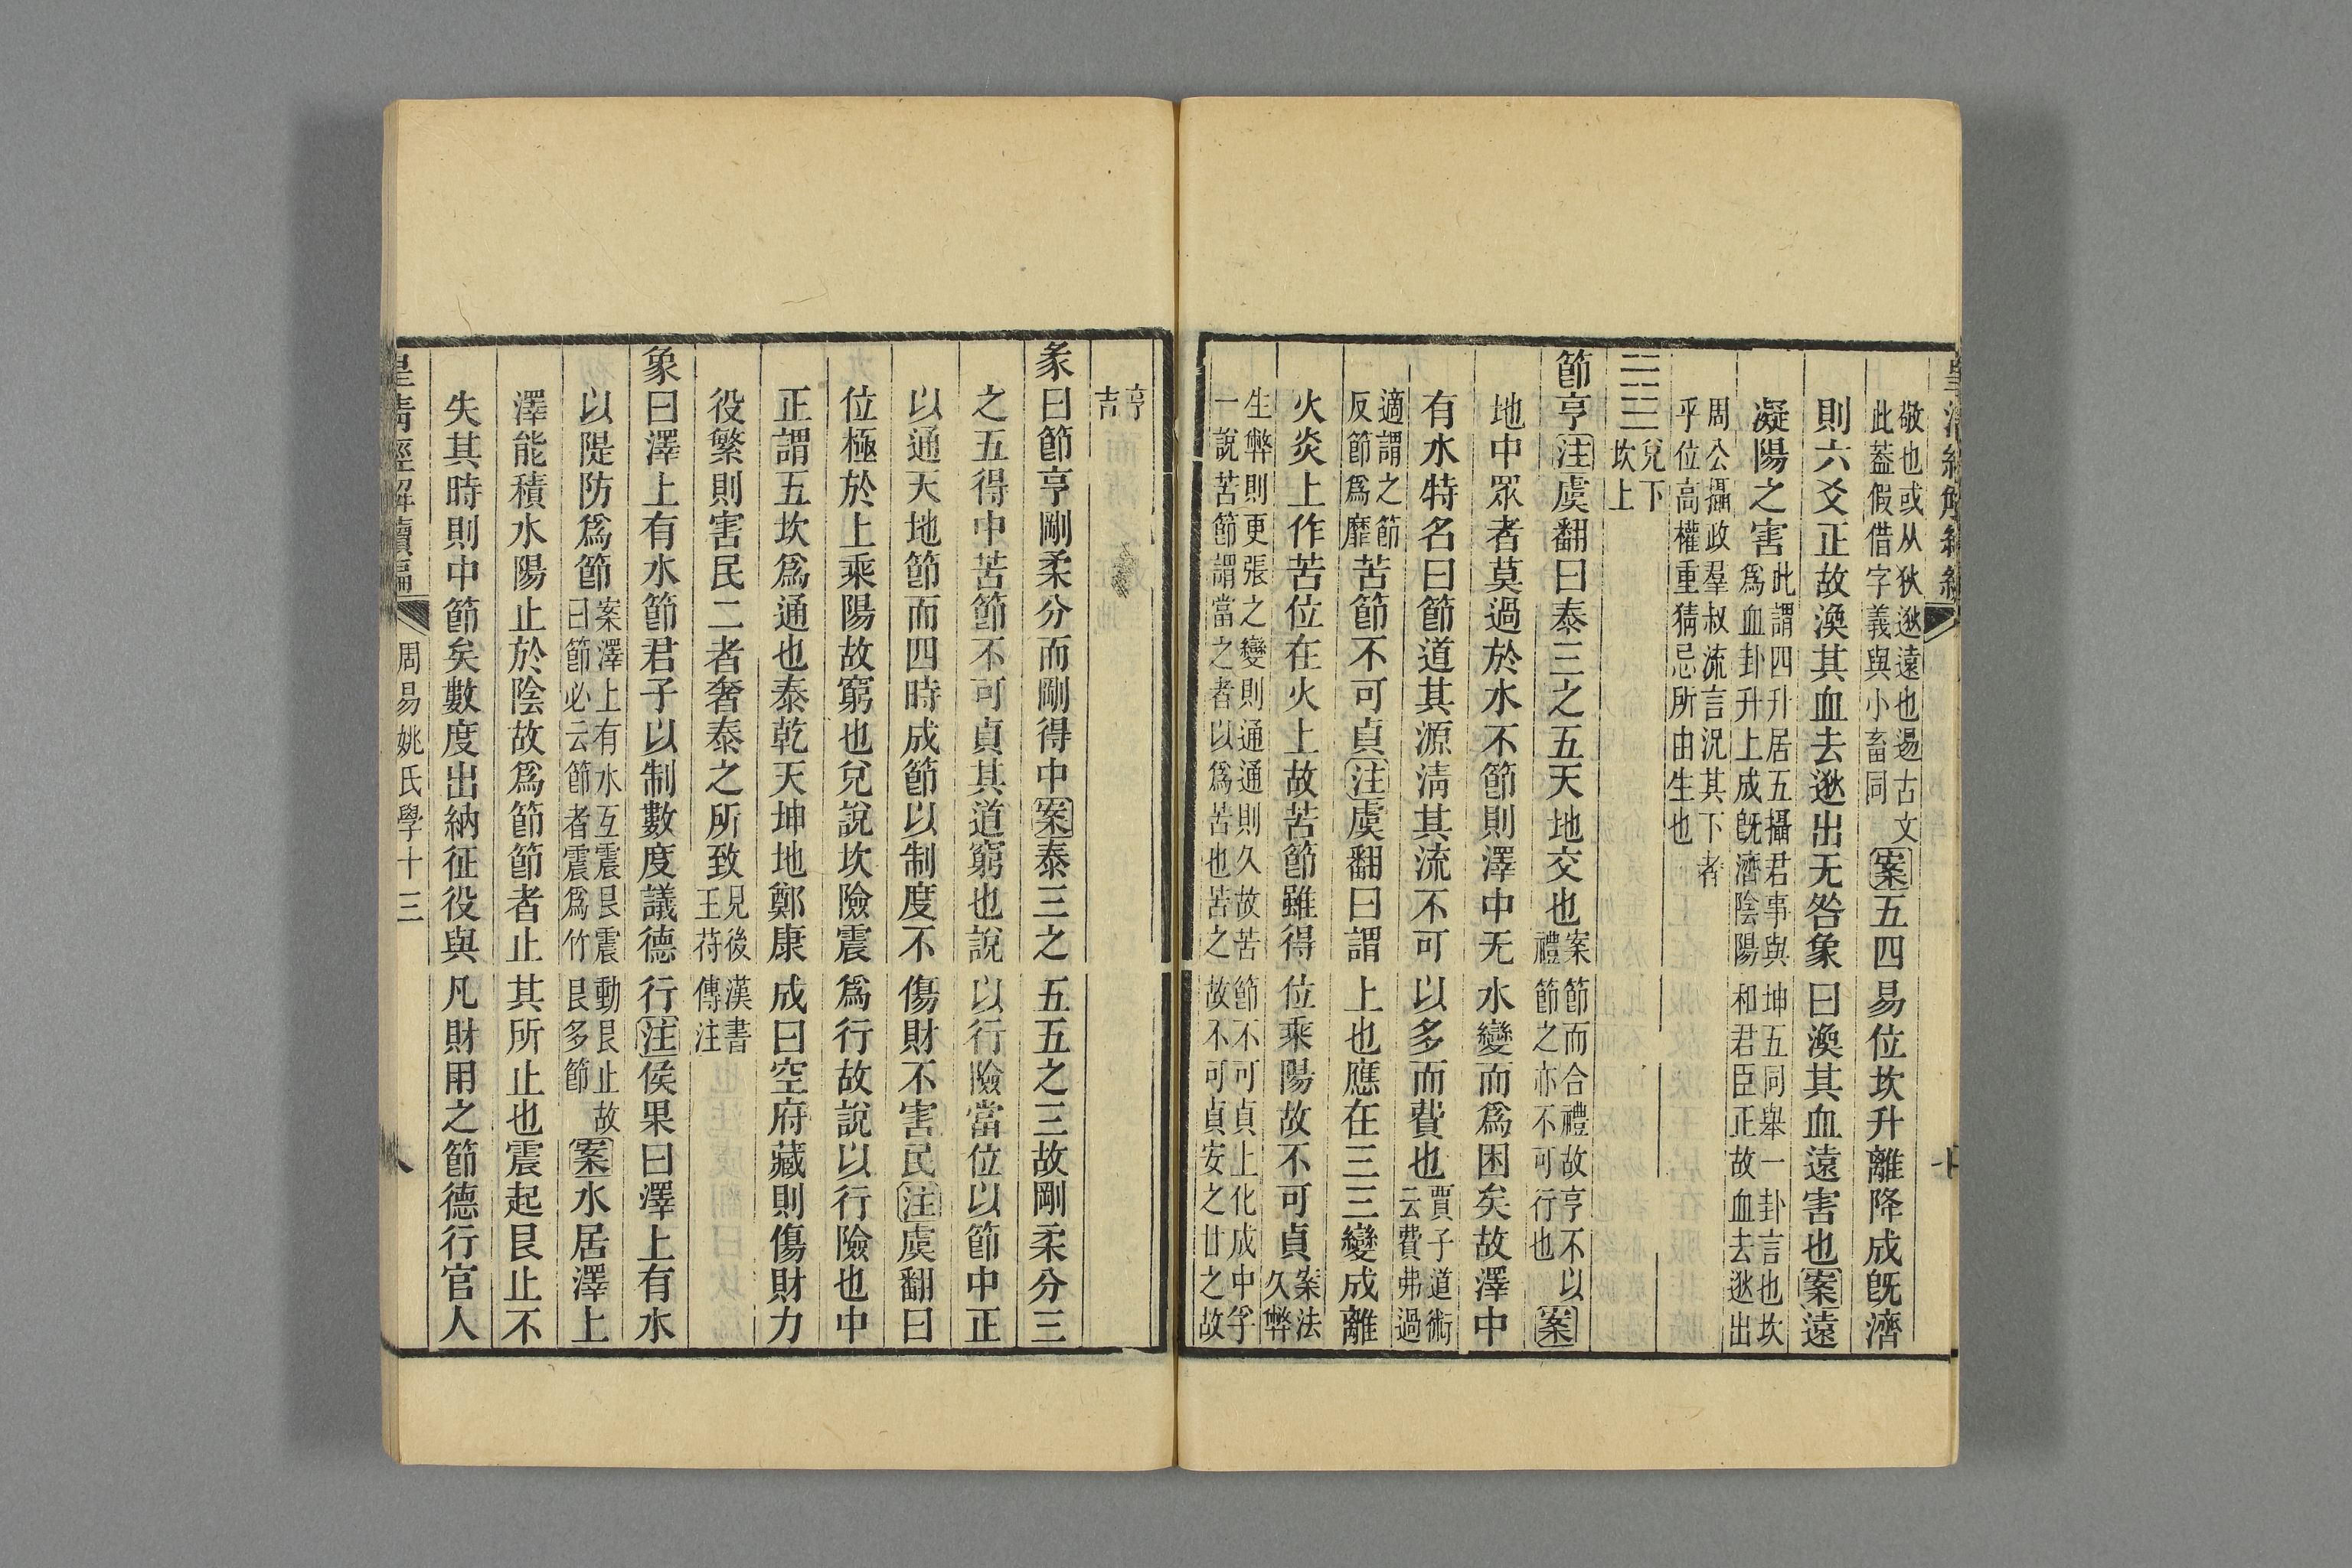 敬也或从狄逖遠也逷古文
此葢假借字義與小畜同
案五四易位坎升離降成旣濟
則六爻正故渙其血去逖出无咎象曰渙其血遠害也案遠
凝陽之害此謂四升居五攝君事與坤五同舉一卦言也坎
爲血卦升上成旣濟陰陽和君臣正故血去逖出
周公攝政羣叔流言況其下者
乎位高權重猜忌所由生也
兌下
坎上
節亨注虞翻曰泰三之五天地交也案節而合禮故亨不以
禮節之亦不可行也
案
地中眾者莫過於水不節則澤中无水變而爲困矣故澤中
有水特名曰節道其源淸其流不可以多而費也賈子道術
云費弗過
適謂之節
反節爲靡
苦節不可貞注虞翻曰謂上也應在三三變成離
火炎上作苦位在火上故苦節雖得位乘陽故不可貞案法
久弊
生弊則更張之變則通通則久故苦節不可貞上化成中孚
一說苦節謂當之者以爲苦也苦之故不可貞安之甘之故
亨
吉
彖曰節亨剛柔分而剛得中案泰三之五五之三故剛柔分三
之五得中苦節不可貞其道窮也說以行險當位以節中正
以通天地節而四時成節以制度不傷財不害民注虞翻曰
位極於上乘陽故窮也兌說坎險震爲行故說以行險也中
正謂五坎爲通也泰乾天坤地鄭康成曰空府藏則傷財力
役繁則害民二者奢泰之所致見後漢書
王苻傳注
象曰澤上有水節君子以制數度議德行注侯果曰澤上有水
以隄防爲節案澤上有水互震艮震動艮止故
曰節必云節者震爲竹艮多節
案水居澤上
澤能積水陽止於陰故爲節節者止其所止也震起艮止不
失其時則中節矣數度出納征役與凡財用之節德行官人
皇淸經解續編
周易姚氏學十三
八